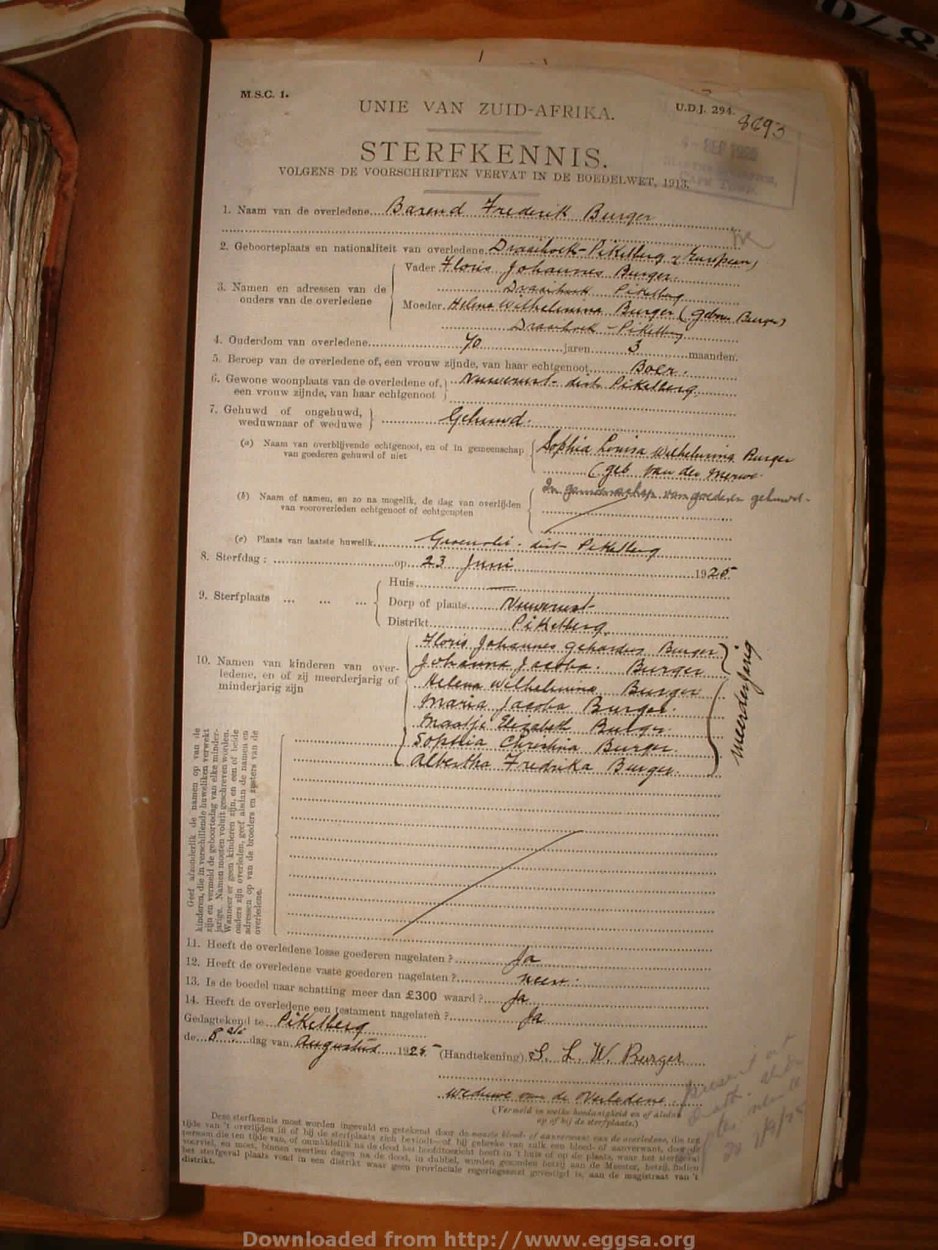 M.S.C. 1.
UNIE VAN ZUID-AFRIKA.
U.D.J. 294.
8693
STERFKENNIS.
VOLGENS DE VOORSCHRIFTEN VERVAT IN DE BOEDELWET, 1913.
1. Naam van de overledene Barend Frederik Burger
2. Geboorteplaats en nationaliteit van overledene Draaihoek - Piketberg, European
3. Namen en adressen van de ouders van de overledene
Vader Floris Johannes Burger
Draaihoek Piketberg
Moeder Helena Wilhelmina Burger (geboren Burger)
Draaihoek - Piketberg
4. Ouderdom van overledene 70 jaren 3 maanden.
5. Beroep van de overledene of, een vrouw zijnde, van haar echtgenoot Boer.
6. Gewone woonplaats van de overledene of, een vrouw zijnde, van haar echtgenoot Nuwerust - dist. Piketberg
7. Gehuwd of ongehuwd, weduwnaar of weduwe Gehuwd.
(a) Naam van overblijvende echtgenoot, en of in gemeenschap van goederen gehuwd of niet
Sophia Louisa Wilhelmina Burger
(geb. van der Merwe
In gemeenschap van goederen gehuwd.
(b) Naam of namen, en zo na mogelik, de dag van overlijden van vooroverleden echtgenoot of echtgenoten
(c) Plaats van laatste huwelik dist Piketberg
8. Sterfdag: op 23 Juni 1925
9. Sterfplaats ... ... ...
Huis
Dorp of plaats Nuwerust
Distrikt Piketberg
10. Namen van kinderen van overledene, en of zij meerderjarig of minderjarig zijn
Floris Johannes Gehardus Burger
Johanna Jacoba Burger
Helena Wilhelmina Burger
Maria Jacoba Burger.
Maatje Elizabeth Burger
Sophia Christina Burger
Albertha Fredrika Burger.
meerderjarig
Geef afzonderlik de namen op van de
kinderen, die in verschillende huweliken verwekt
zijn en vermeld de geboortedag van elke minder-
jarige. Namen moeten voluit geschreven worden.
Wanneer er geen kinderen zijn, en een of beide
ouders zijn overleden, geef alsdan de namen en
adressen op van de broeders en zusters van de
overledene.
11. Heeft de overledene losse goederen nagelaten? Ja
12. Heeft de overledene vaste goederen nagelaten? neen.
13. Is de boedel naar schatting meer dan £300 waard? Ja
14. Heeft de overledene een testament nagelaten? Ja
Gedagtekend te Piketberg
de 8ste dag van Augustus 1925 (Handtekening) S. L. W. Burger
Weduwe van de Overledene.
(Vermeld in welke hoedanigheid en of aldaar
op of bij de sterfplaats.)
Deze sterfkennis moet worden ingevuld en getekend door de naaste bloed- of aanverwant van de overledene, die ten
tijde van 't overlijden in of bij de sterfplaats zich bevindt—of bij gebreke van zulk een bloed- of aanverwant, door de
persoon die ten tijde van, of onmiddellik na de dood het hoofdtoezicht heeft in 't huis of op de plaats, waar het sterfgeval
voorviel, en moet, binnen veertien dagen na de dood, in dubbel, worden gezonden hetzij aan de Meester, hetzij, indien
het sterfgeval plaats vond in een distrikt waar geen provinciale regeringszetel gevestigd is, aan de magistraat van 't
distrikt.
Downloaded from http://www.eggsa.org